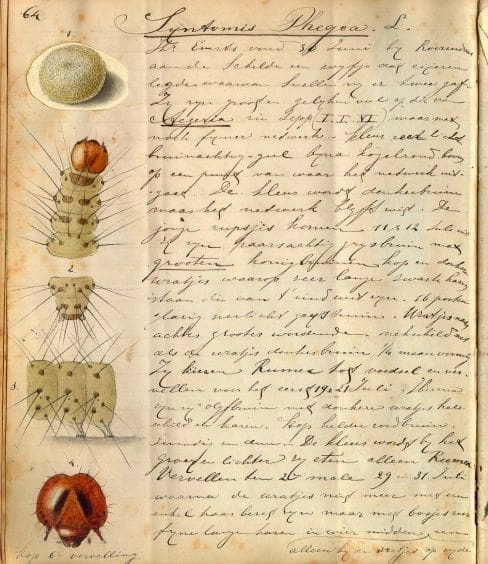 64
Syntomis Phegea. L.
1.
Th. Everts vond 30 Juni by Roozendaal
aan de Schelde een wyfje dat eijeren
legde waarvan Snellen my er twee gaf.
Zy zyn groot en gelyken veel op die van
Aegeria zie Sepp (I. I. VI) maar met
noch fyner netwerk. kleur licht
bruinachtig-geel byna kogelrond, boven
op een punt van waar het netwerk uit-
gaat. De kleur wordt donkerbruin
maar het netwerk blyft wit. De
jonge rupsjes komen 11 à 12 Juli uit
zyn paarsachtig grysbruin met
grooten honigbruinen kop en donkere
wratjes waarop zeer lange zwarte haren
staan die aan 't eind wit zyn. 16 pooten
glazig licht grysbruin. Wratjes naar
achter grooter wordende nekschild net
als de wratjes donkerbruin 1/2 maanvormig
2.
Zy kiezen Rumex tot voedsel en ver-
vellen voor het eerst 19 à 21 Juli.
zyn olyfbruin met donkere wratjes hals
schild en haren. Kop helder roodbruin
3.
De kleur wordt by het
groeien lichter zy eten alleen Rumex
4.
Vervellen ten 2e male 29 – 31 Juli
waarna de wratjes niet meer met een
enkel haar bezet zyn maar met bosjes zeer
fyne lange haren in wier midden
kop 6e vervelling
alleen by de wratjes op zyde